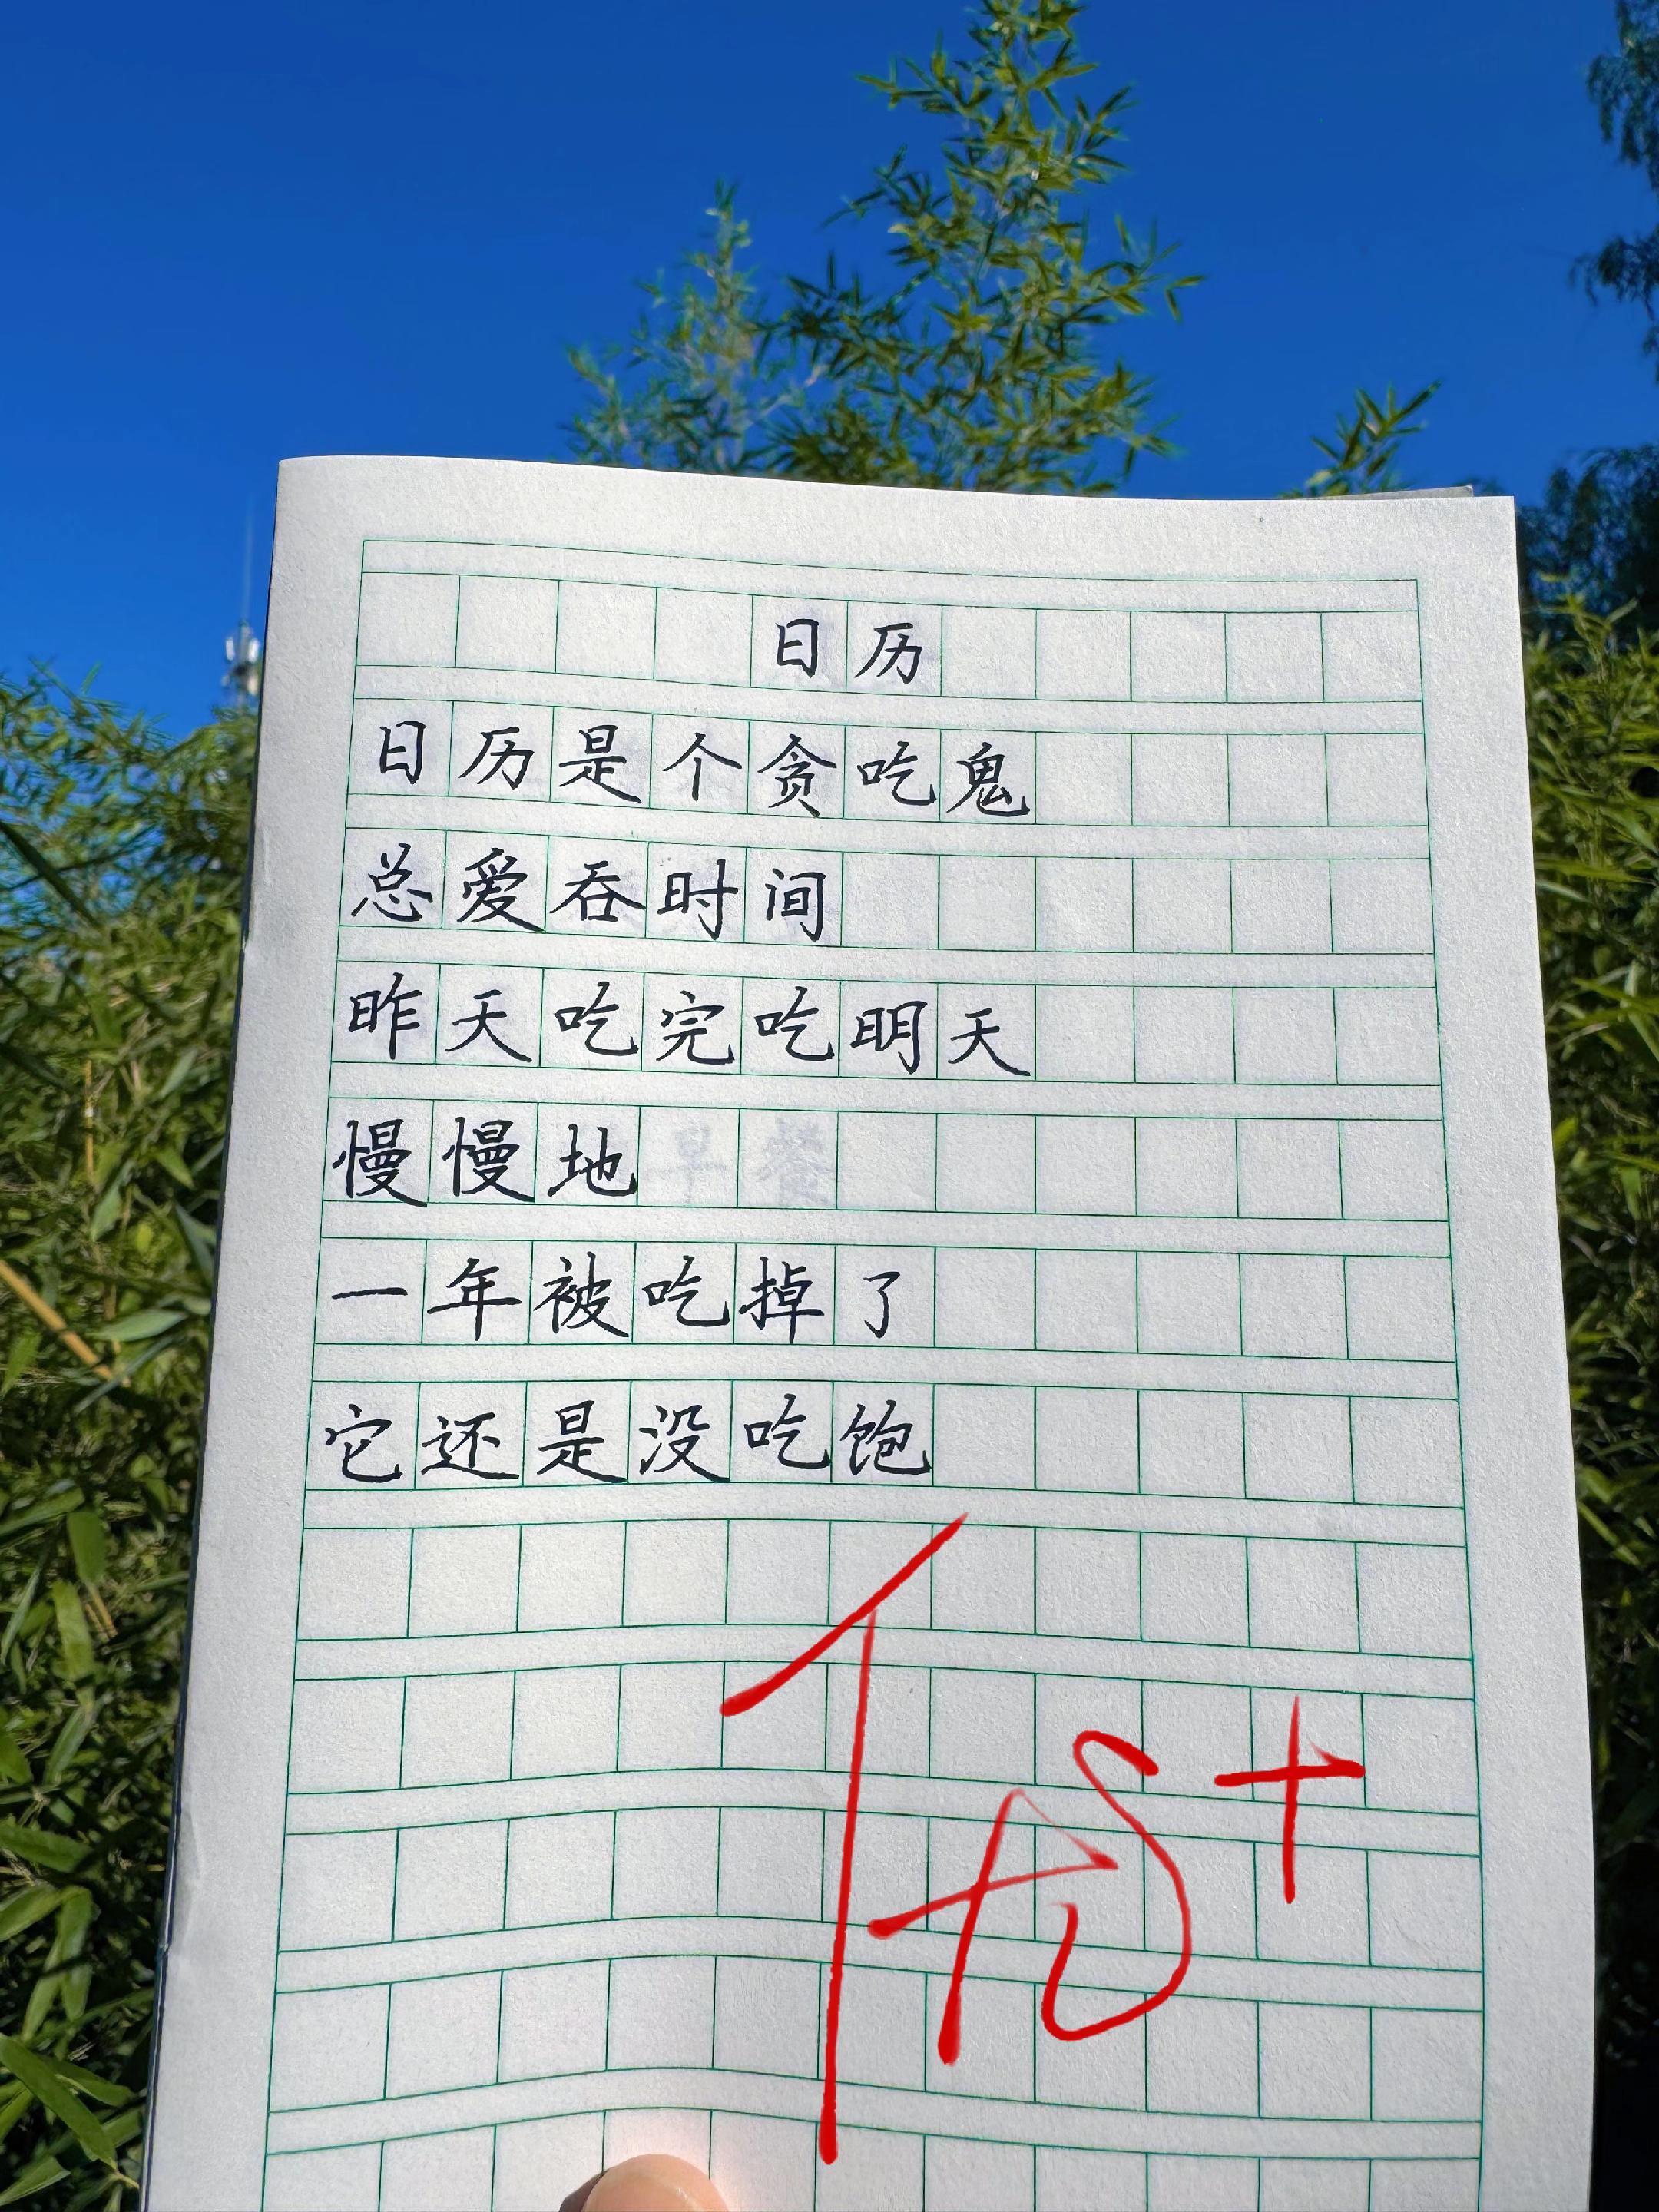 日历
日历是个贪吃鬼
总爱吞时间
昨天吃完吃明天
慢慢地
一年被吃掉了
它还是没吃饱
优+